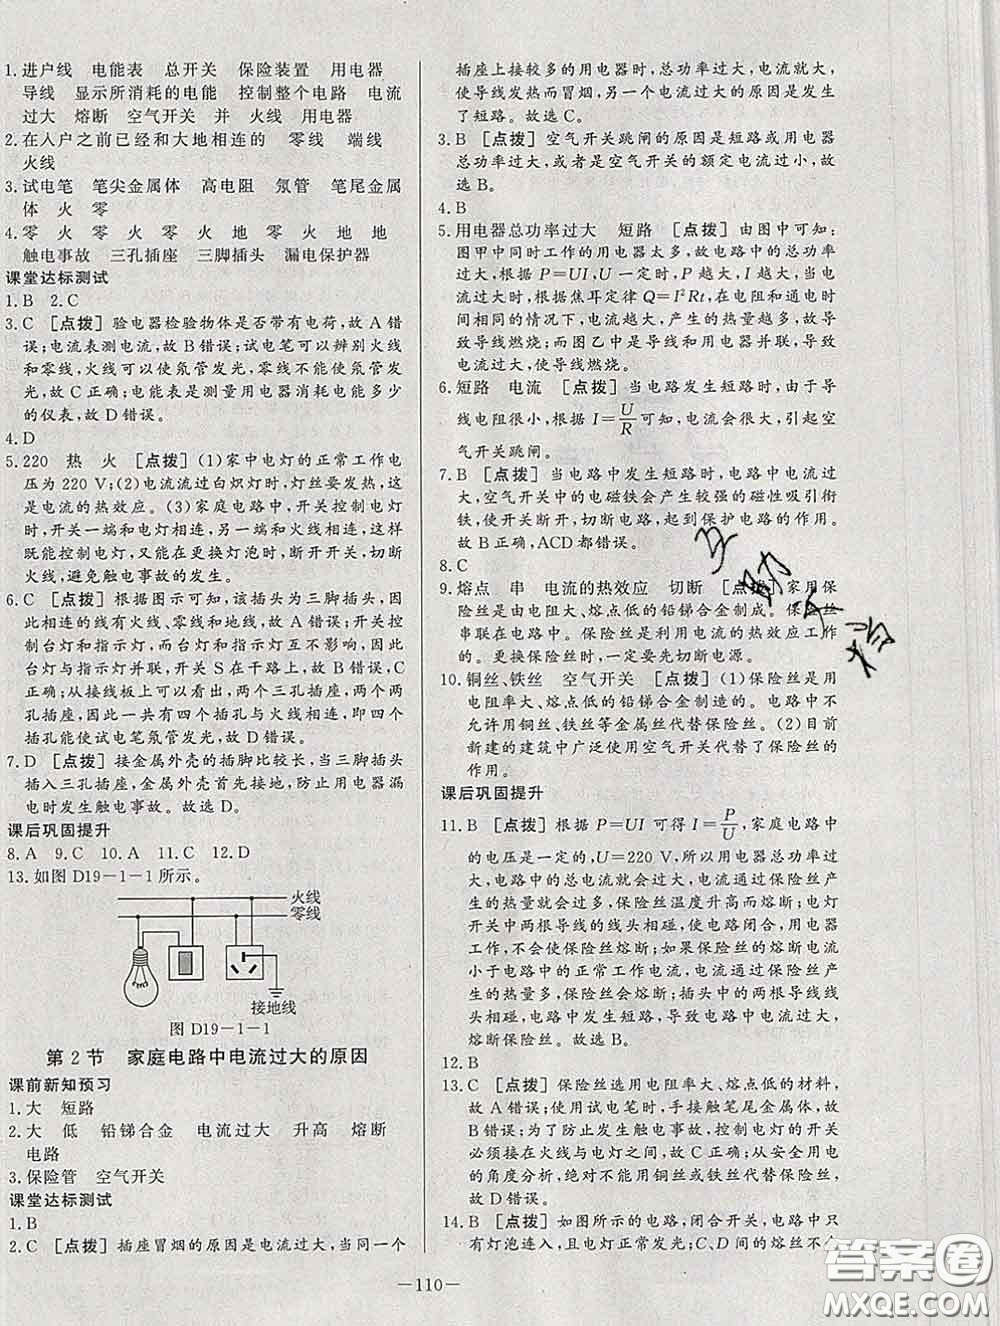 1.进户线 电能表 总开关 保险装置 用电器
导线 显示所消耗的电能 控制整个电路 电流
过大 熔断 空气开关 并 火线 用电器
2.在入户之前已经和大地相连的 零线 端线
火线
3.试电笔 笔尖金属体 高电阻 氖管 笔尾金属
体 火 零
4.零 火 零 火 零 火 地 零 火 地 地
触电事故 三孔插座 三脚插头 漏电保护器
课堂达标测试
1.B 2.C
3.C [点拨] 验电器检验物体是否带有电荷,故A错
误;电流表测电流,故B错误;试电笔可以辨别火线
和零线,火线可以使氖管发光,零线不能使氖管发
光,故C正确;电能表是测量用电器消耗电能多少
的仪表,故D错误。
4.D
5.220 热 火 [点拨] (1)家中电灯的正常工作电
压为220 V;(2)电流流过白炽灯时,灯丝要发热,这
是电流的热效应。(3)家庭电路中,开关控制电灯
时,开关一端和电灯相连,另一端和火线相连,这样
既能控制电灯,又能在更换灯泡时,断开开关,切断
火线,避免触电事故的发生。
6.C [点拨] 根据图示可知,该插头为三脚插头,因
此相连的线有火线、零线和地线,故A错误;开关控
制台灯与指示灯,且台灯和指示灯互不影响,因此
台灯与指示灯并联,开关S在干路上,故B错误,C
正确;从接线板上可以看到,两个三孔插座,两个两
孔插座,因此一共有四个插孔与火线相连,即四个
插孔能使试电笔氖管发光,故D错误。
7.D [点拨] 接金属外壳的插脚比较长,当三脚插头
插入三孔插座,金属外壳首先接地,防止因用电器漏
电时发生触电事故。故选D。
课后巩固提升
8.A 9.C 10.A 11.C 12.D
13.如图D19-1-1所示。
火线
零线
接地线
图D19-1-1
第2节 家庭电路中电流过大的原因
课前新知预习
1.大 短路
2.大 低 铅锑合金 电流过大 升高 熔断
电路
3.保险管 空气开关
课堂达标测试
1.B
2.C [点拨] 插座冒烟的原因是电流过大,当同一个
插座上接较多的用电器时,总功率过大,电流就大,
使导线发热而冒烟,另一个电流过大的原因是发生
了短路。故选C。
3.B [点拨] 空气开关跳闸的原因是短路或用电器
总功率过大,或者是空气开关的额定电流过小,故
选B。
4.B
5.用电器总功率过大 短路 [点拨] 由图中可知:
图甲中同时工作的用电器太多,故电路中的总功率
过大,根据P=UI,U一定时,P越大,I越大,当电
流过大时,根据焦耳定律Q=I²Rt,在电阻和通电时
间相同的情况下,电流越大,产生的热量越多,故导
致导线燃烧;而图乙中是导线和用电器并联,导致
电流过大,使导线燃烧。
6.短路 电流 [点拨] 当电路发生短路时,由于导
线电阻很小,根据I=U/R可知,电流会很大,引起空
气开关跳闸。
7.B [点拨] 当电路中发生短路时,电路中电流过
大,空气开关中的电磁铁会产生较强的磁性吸引衔
铁,使开关断开,切断电路,起到保护电路的作用。
故B正确,ACD都错误。
8.C
9.熔点 串 电流的热效应 切断 [点拨] 家用保
险丝是由电阻大、熔点低的铅锑合金制成。保险丝
串联在电路中。保险丝是利用电流的热效应工作
的。更换保险丝时,一定要先切断电源。
10.铜丝、铁丝 空气开关 [点拨] (1)保险丝是用
电阻率大、熔点低的铅锑合金制造的。电路中不
允许用铜丝、铁丝等金属丝代替保险丝。(2)目前
新建的建筑中广泛使用空气开关代替了保险丝
的作用。
课后巩固提升
11.B [点拨] 根据P=UI可得I=P/U,家庭电路中
的电压是一定的,U=220 V,所以用电器总功率过
大,电路中的总电流就会过大,电流通过保险丝产
生的热量就会过多,保险丝温度升高而熔断;电灯
开关中两根导线的线头相碰,电路闭合,用电器
工作,不会使保险丝熔断;如果保险丝的熔断电流
小于电路中的正常工作电流,电流通过保险丝产
生的热量多,保险丝会熔断;插头中的两根导线线
头相碰,电路发生短路,电路中的电流过大,保险
丝会熔断。
12.B
13.C [点拨] 保险丝选用电阻率大、熔点低的材料,
故A错误;使用试电笔时,手接触笔尾金属体,故
B错误;为了防止发生触电事故,控制电灯的开关
必须接在火线与电灯之间,故C正确;从安全用电
的角度分析,绝对不能用铜丝或铁丝代替保险丝,
故D错误。
14.B [点拨] 如图所示的电路,闭合开关,电路中只
有灯泡连入,且电灯正常发光;C、D间的熔丝不
—110—
答案圈
MXQE.COM